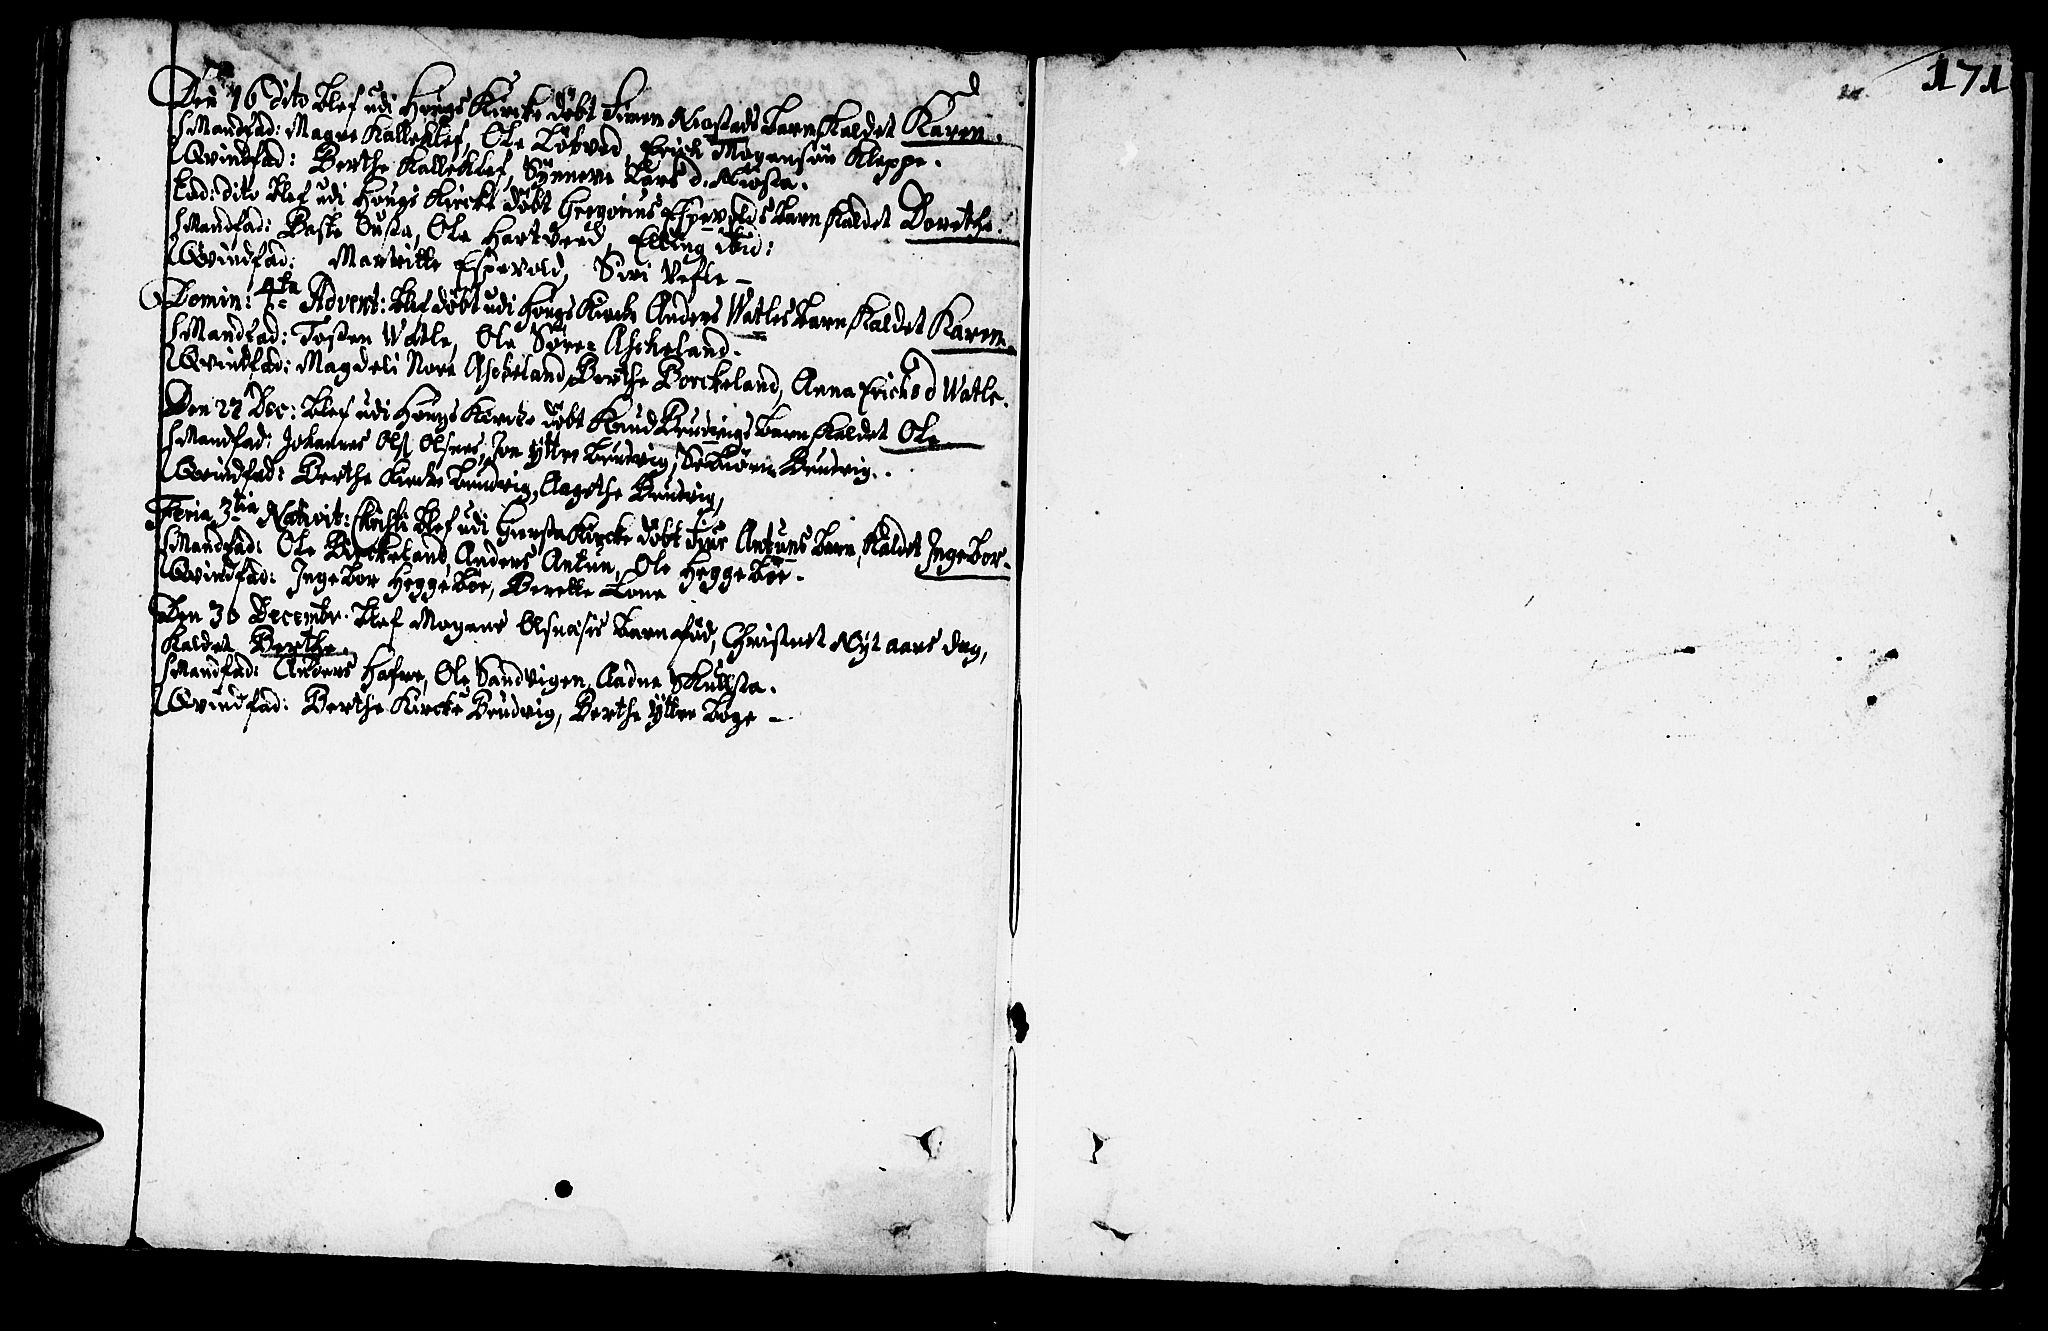 Den 16 dito blef udi Hougs Kircke döbt Siven Kiostads barn kaldet Karen.
Mandfad: Magne Kalleklef, Ole Lökved, Erich Mogensön Kleppe.
Qvindfad: Berthe Kalleklef, Synneve Lars d. Kiosta.
Ead: dito blef udi Hougs Kircke döbt Gregorius Espevolds barn kaldet Dorethe.
Mandfad: Baste Susta, Ole Hartveed, Elling ibid:
Qvindfad: Maritte Espevold, Siri Vefle
Domin: 4ta Advent: blef döbt udi Hougs Kircke Anders Watles barn kaldet Karen.
Mandfad: Tosten Watle, Ole Söre Askeland.
Qvindfad: Magdeli Nore Askeland, Berthe Borckeland, Anna Erichsd Watle.
Den 27 Dec: blef udi Hougs Kircke döbt Knud Brudvigs barn kaldet Ole
Mandfad: Johannes Ols Olsnes, Jon Yttre Brudvig, Brudvig.
Qvindfad: Berthe Kircke Brudvig, Aagothe Brudvig,
Feria 3tia Nativit: Christi blef udi Giersta Kircke döbt Siur Antuns barn, kaldet Ingebor.
Mandfad: Ole Birckeland, Anders Antun, Ole Heggeböe.
Qvindfad: Ingebor Heggeböe, Berette Lone
Den 30 Decembr. blef Mogens Olsnæsis barn föd, Christnet Nyt aars dag,
kaldet Berthe.
Mandfad: Anders Hafre, Ole Sandvigen, Aadne Skulsta.
Qvindfad: Berthe Kircke Brudvig, Berthe Yttre Böge
171